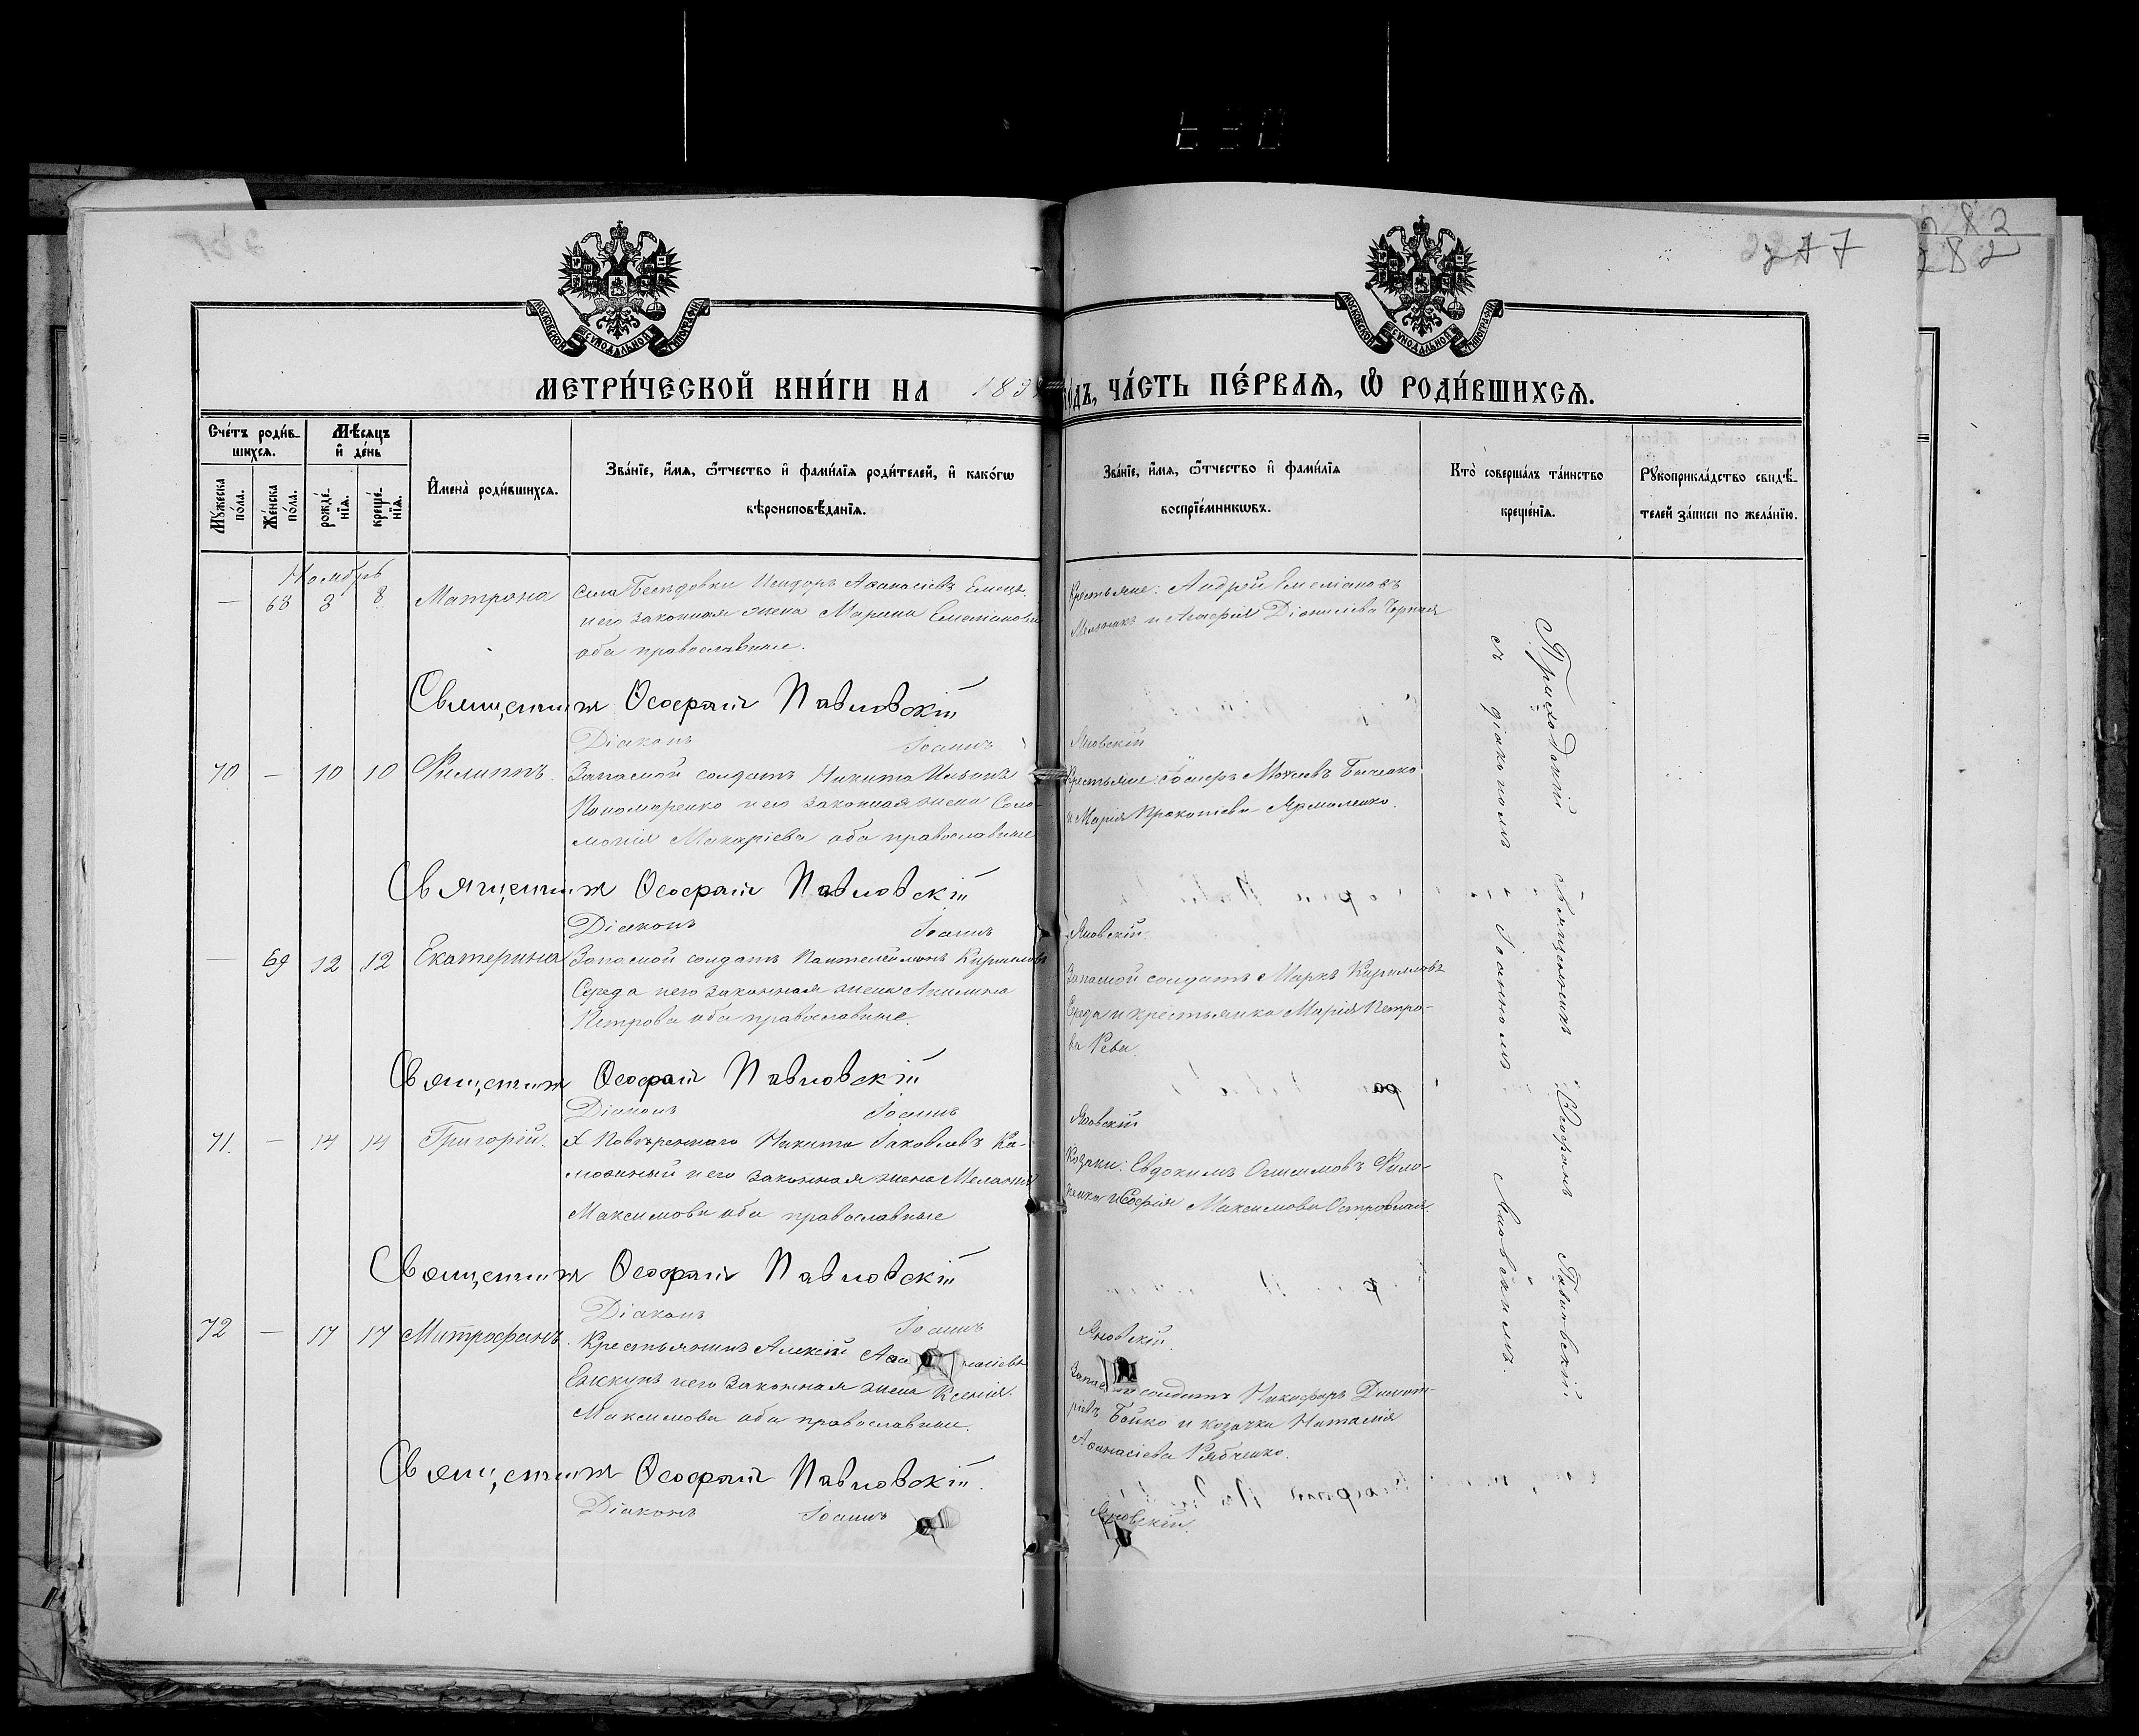 277
282
282
МОСКОВСКОЙ СѴНОДАЛЬНОЙ ТИПОГРАФІИ
МОСКОВСКОЙ СѴНОДАЛЬНОЙ ТИПОГРАФІИ
МЕТРИ́ЧЕСКОЙ КНИ́ГИ НА 189
ГО́ДЪ, ЧА́СТЬ ПЕ́РВАѦ, Ѿ РОДИ́ВШИХСѦ.
Сче́тъ роди́в-
шихсѧ.
Мѣ́сѧцъ
и҆ де́нь
Мꙋ́жеска
по́ла.
Же́нска
по́ла.
рожде́-
нїѧ.
креще́-
нїѧ.
И҆мена̀ роди́вшихсѧ.
Зва́нїе, и҆́мѧ, ѻ҆́тчество и҆ фами́лїѧ роди́телей, и҆ како́гѡ
вѣроисповѣ́данїѧ.
Зва́нїе, и҆́мѧ, ѻ҆́тчество и҆ фами́лїѧ
воспрїе́мникѡвъ.
Кто̀ соверша́лъ та́инство
креще́нїѧ.
Рꙋкоприкла́дство свидѣ́-
телей за́писи по жела́нїю.
Ноябрь
— 68 8 8 Матрона
села Бесѣдовки Исидоръ Аѳанасіевъ Емецъ
и его законная жена Марина Емеліанова
оба православные.
Крестьяне: Андрей Емеліановъ
Мельникъ и Агафія Даніилева Черная
Священник Ѳеофанъ Павловскій
Діаконъ Іоаннъ Яновскій
70 — 10 10 Филиппъ
Запасной солдатъ Никита Ильинъ
Пономаренко и его законная жена Соло-
монія Макаріева оба православные
Крестьяне: Моисеевъ
и Марія Прокопіева Ярмоленко.
Священник Ѳеофанъ Павловскій
Діаконъ Іоаннъ Яновскій
— 69 12 12 Екатерина
Запасной солдатъ Пантелеймонъ Кирилловъ
Середа и его законная жена Акилина
Петрова оба православные.
Запасной солдатъ Маркъ Кирилловъ
Середа и крестьянка Марія Петро-
ва Рева.
Священник Ѳеофанъ Павловскій
Діаконъ Іоаннъ Яновскій
71. — 14 14 Григорій.
Никита Іаковлевъ Ка-
и его законная жена Меланія
Максимова оба православные
Козаки: Евдокимъ Онисимовъ Фило-
ненко и Софія Максимова
Священник Ѳеофанъ Павловскій
Діаконъ Іоаннъ Яновскій
72 — 17 17 Митрофанъ.
Крестьянинъ Алексій Аѳанасіевъ
и его законная жена Ксенія
Максимова оба православные.
Запасной солдатъ Никифоръ Димит-
ріевъ Бойко и козачка Наталія
Аѳанасіева Рябченко.
Священник Ѳеофанъ Павловскій.
Діаконъ Іоаннъ Яновскій.
Приходскій священникъ Ѳеофанъ Павловскій
съ діакономъ Іоанномъ Яновскимъ.